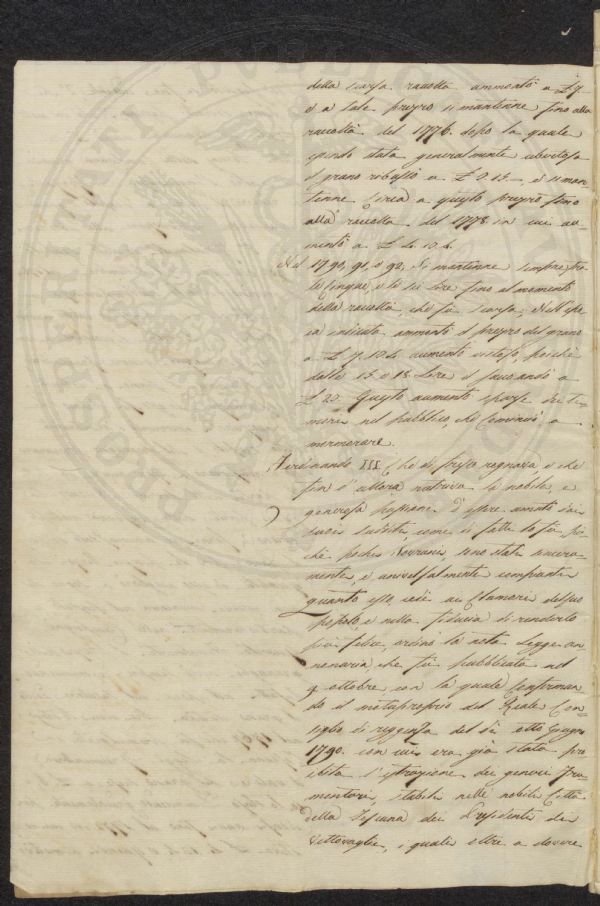 della scarsa raccolta aumentò a £ 7
e a tale prezzo si mantenne fino alla
raccolta del 1776. dopo la quale
essendo stata generalmente ubertosa
il grano ribassò a £ e si man-
tenne circa a questo prezzo fino
alla raccolta del 1778 in cui au-
mentò a £
Nel 1790, 91, e 92, si mantenne sempre tra
le cinque, e le sei lire fino al momento
della raccolta, che fu scarsa; Nell' epo
ca indicata aumentò il prezzo del grano
a £ 7. 10. aumento vistoso, poichè
dalle 15. o 18. Lire il sacco andò a
£ 20. Questo aumento sparse dei ti-
mori nel pubblico, che cominciò a
mormorare.
Ferdinando III. che di fresco regnava, e che
fin d' allora nutriva la nobile, e
generosa passione d' essere amato dai
suoi sudditi, come di fatti lo fu, poi
chè pochi Sovrani sono stati sincera-
mente, e universalmente compianti
quanto esso, cedè ai clamori del suo
popolo, e nella fiducia di renderlo
più felice, ordinò la nota Legge an-
nonaria, che fu pubblicata nel
9 ottobre, con la quale confirman-
do il motuproprio del Reale Con-
siglio di reggenza del dì otto Giugno
1790. con cui era già stata pro
ibita l' estrazione dei generi fru-
mentari, stabilì nelle nobili Città
della Toscana dei Presidenti di
Vettovaglie, i quali oltre a dovere
PROSPERITATI PUBLICAE